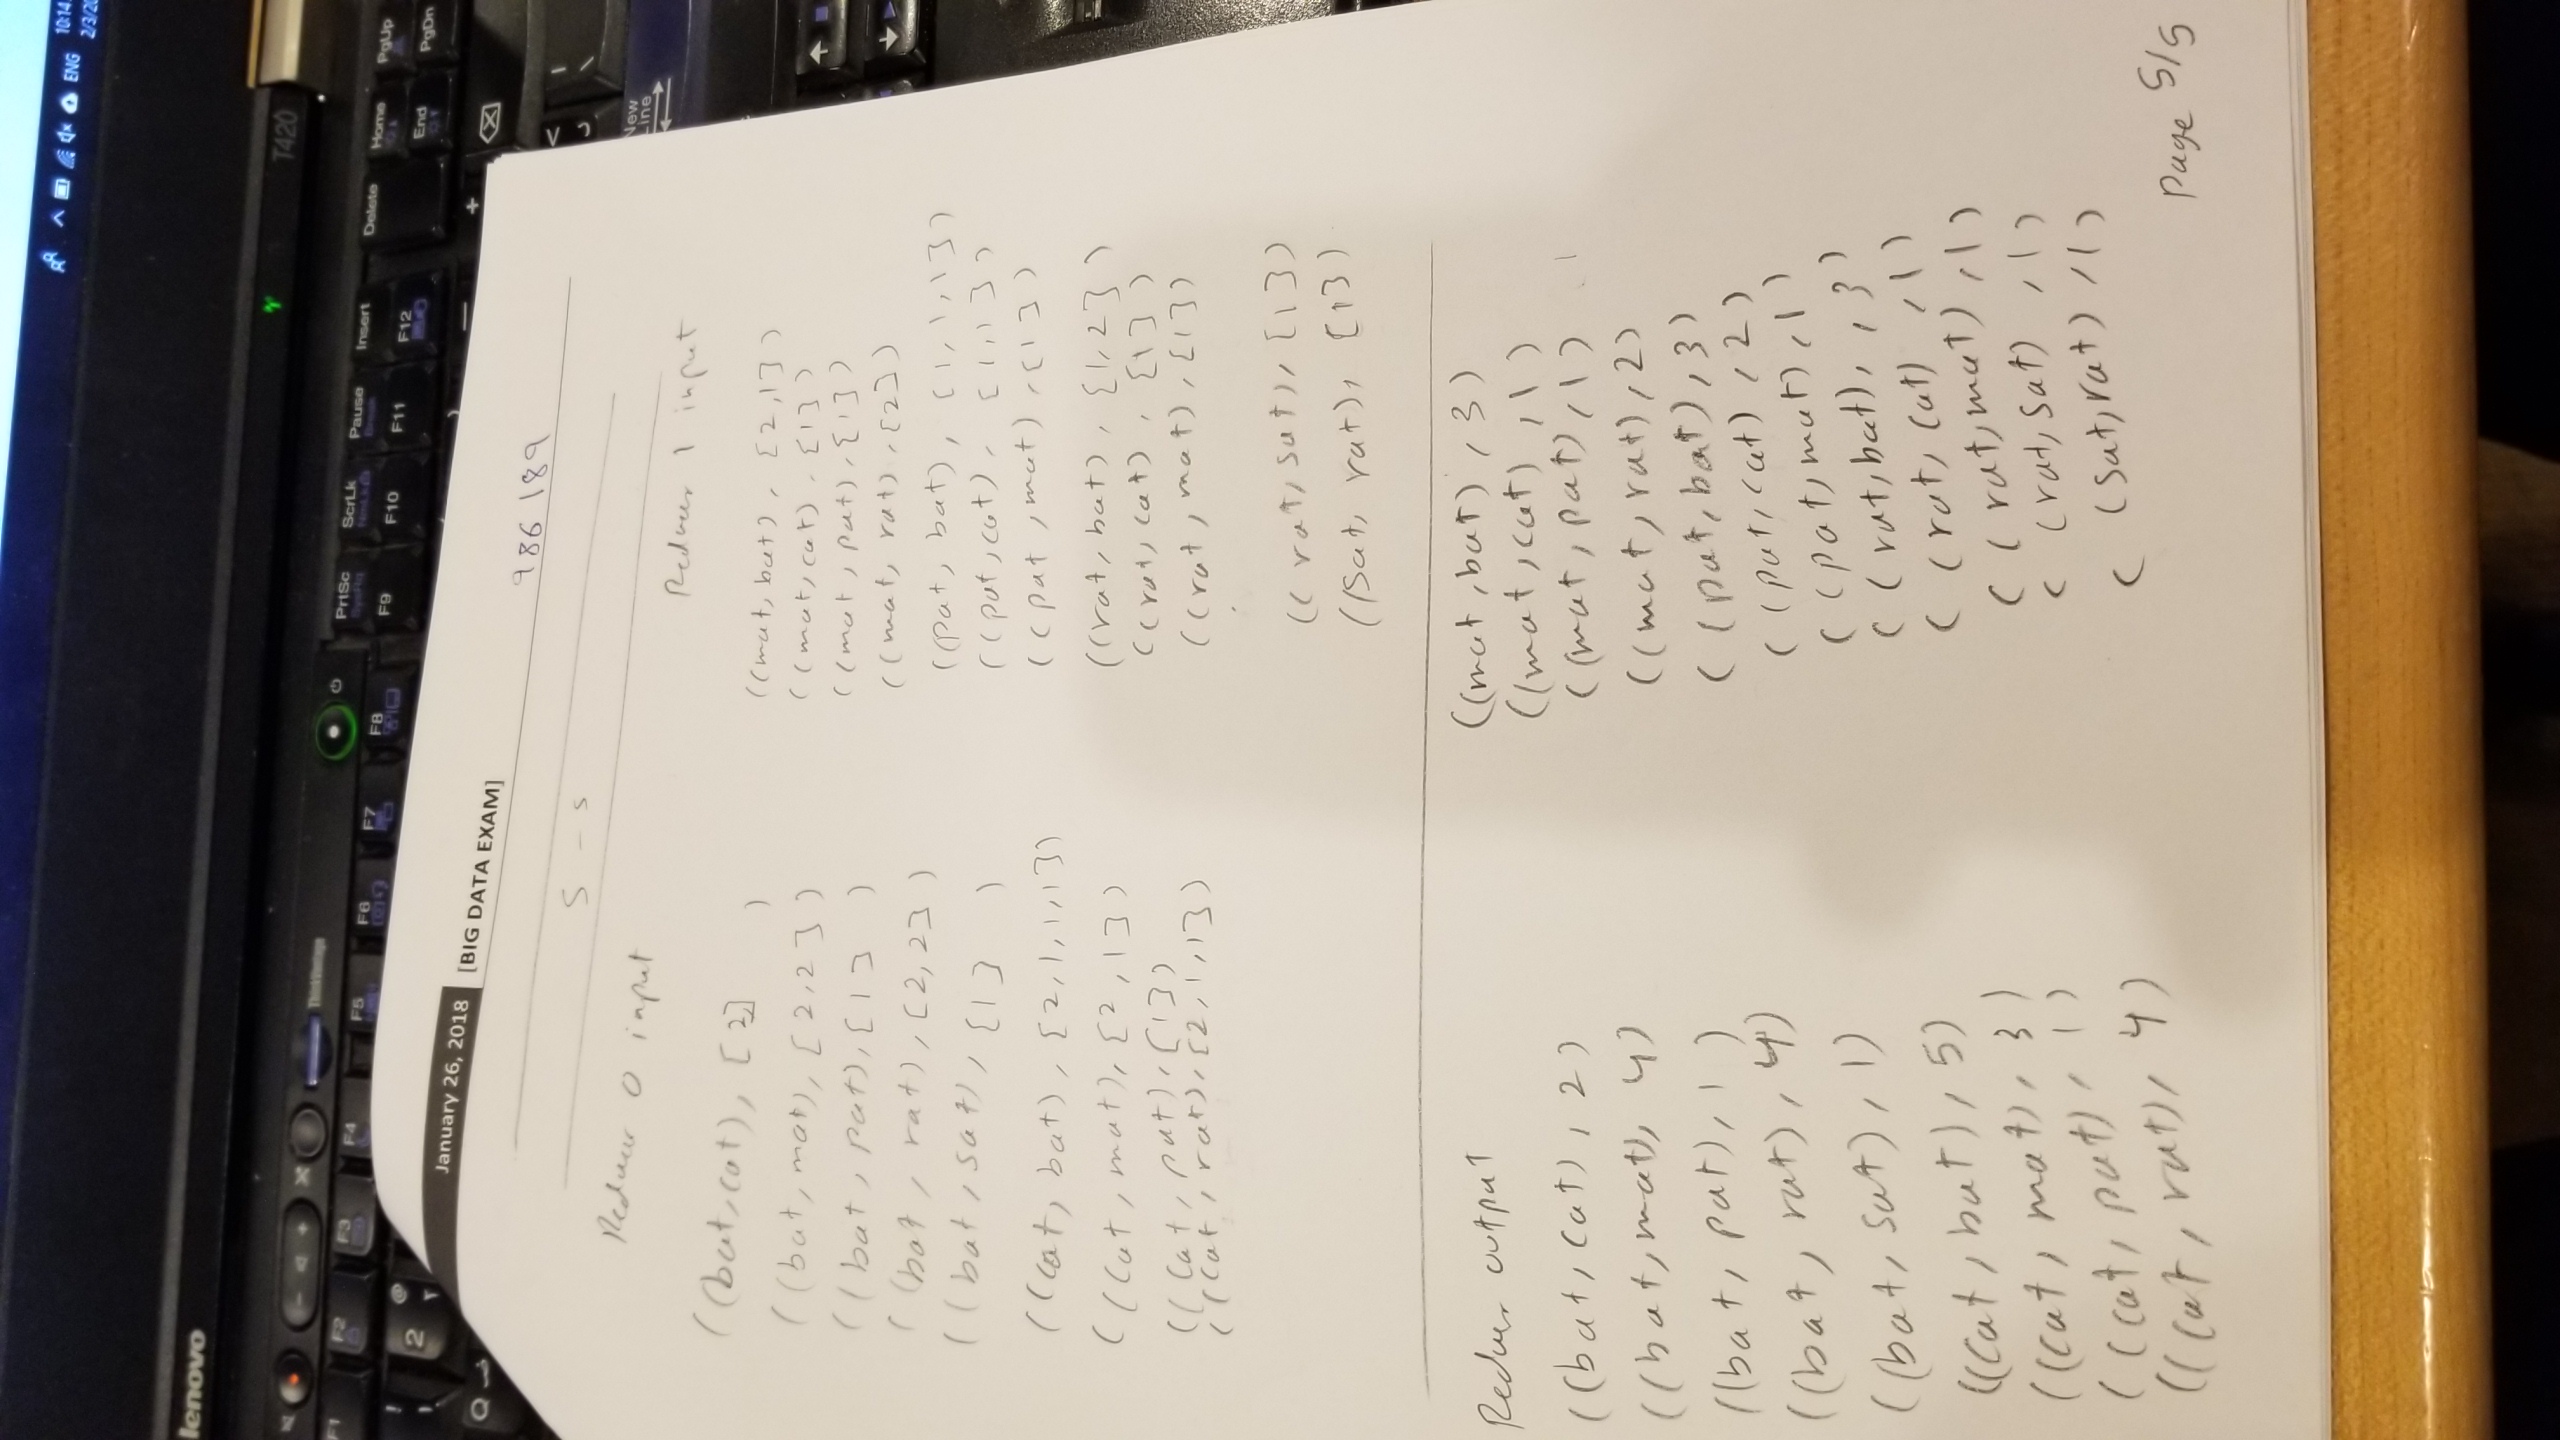 10:14
ENG
2/3/20
lenovo
T420
ThinkVantage
F1 F2 F3 F4 F5 F6 F7 F8 F9 F10 F11 F12
PrtSc ScrLk Pause Insert Delete Home PgUp
SysRq NmLk Break End PgDn
2 @
Q
New
Line
January 26, 2018 [BIG DATA EXAM]
986189
S - s
Reducer 0 input
((bat,cat), [2] )
((bat, mat), [2,2])
((bat, pat), [1] )
((bat, rat), [2,2])
((bat, sat), [1] )
((cat, bat), [2,1,1,1])
((cat, mat), [2,1])
((cat, pat), [1])
((cat, rat), [2,1,1])
Reducer 1 input
((mat, bat), [2,1])
((mat, cat), [1])
((mat, pat), [1])
((mat, rat), [2])
((pat, bat), [1,1,1])
((pat, cat), [1,1])
((pat, mat), [1])
((rat, bat), [1,2])
((rat, cat), [1])
((rat, mat), [1])
((rat, sat), [1])
((sat, rat), [1])
Reducer output
((bat, cat), 2)
((bat, mat), 4)
((bat, pat), 1)
((bat, rat), 4)
((bat, sat), 1)
((cat, bat), 5)
((cat, mat), 3)
((cat, pat), 1)
((cat, rat), 4)
((mat, bat), 3)
((mat, cat), 1)
((mat, pat), 1)
((mat, rat), 2)
((pat, bat), 3)
((pat, cat), 2)
((pat, mat), 1)
((rat, bat), , 3)
((rat, cat), 1)
((rat, mat), 1)
((rat, sat), 1)
((sat, rat), 1)
Page 5/5